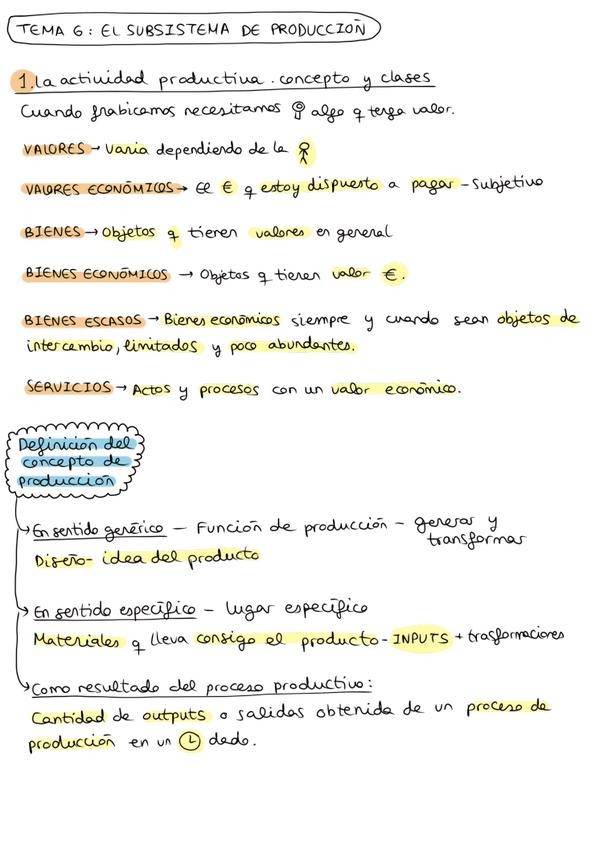 TEMA 6: EL SUBSISTEMA DE PRODUCCIÓN
1. La actividad productiva. concepto y clases
Cuando frabicamos necesitamos algo q tenga valor.
VALORES → Varia dependiendo de la
VALORES ECONÓMICOS → El € q estoy dispuesto a pagar - Subjetivo
BIENES → Objetos q tienen valores en general
BIENES ECONÓMICOS → Objetos q tienen valor €.
BIENES ESCASOS → Bienes económicos siempre y cuando sean objetos de
intercambio, limitados y poco abundantes.
SERVICIOS → Actos y procesos con un valor económico.
Definición del
concepto de
producción
→ En sentido genérico - Función de producción - generar y
transformar
Diseño - idea del producto
→ En sentido específico - lugar específico
Materiales q lleva consigo el producto - INPUTS + trasformaciones
→ Como resultado del proceso productivo:
Cantidad de outputs o salidas obtenida de un proceso de
producción en un dado.